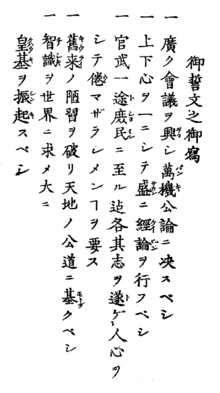 御誓文之御寫
一 廣ク會議ヲ興シ萬機公論ニ决スベシ
一 上下心ヲ一ニシテ盛ニ經論ヲ行フベシ
一 官武一途庶民ニ至ル迠各其志ヲ遂ゲ人心ヲ
シテ倦マザラシメンヿヲ要ス
一 舊來ノ陋習ヲ破リ天地ノ公道ニ基クベシ
一 智識ヲ世界ニ求メ大ニ
皇基ヲ振起スベシ